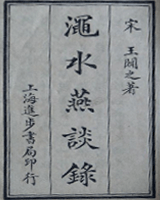 宋 王闢之著
澠水燕談錄
上海進步書局印行